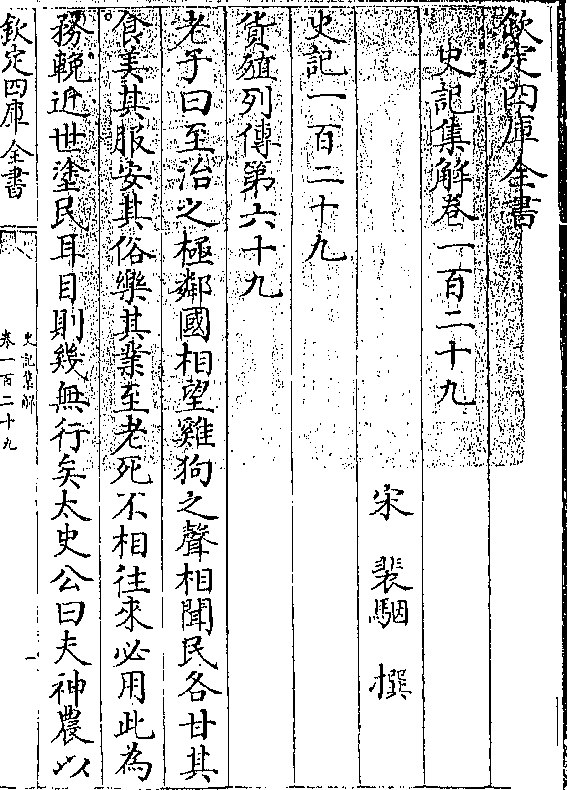 欽定四庫全書
史記集解卷一百二十九
宋 裴駰 撰
史記一百二十九
貨殖列傳第六十九
老子曰至治之極鄰國相望雞狗之聲相聞民各甘其
食美其服安其俗樂其業至老死不相往來必用此為
務輓近世塗民耳目則幾無行矣太史公曰夫神農以
欽定四庫全書
史記集解
卷一百二十九
一